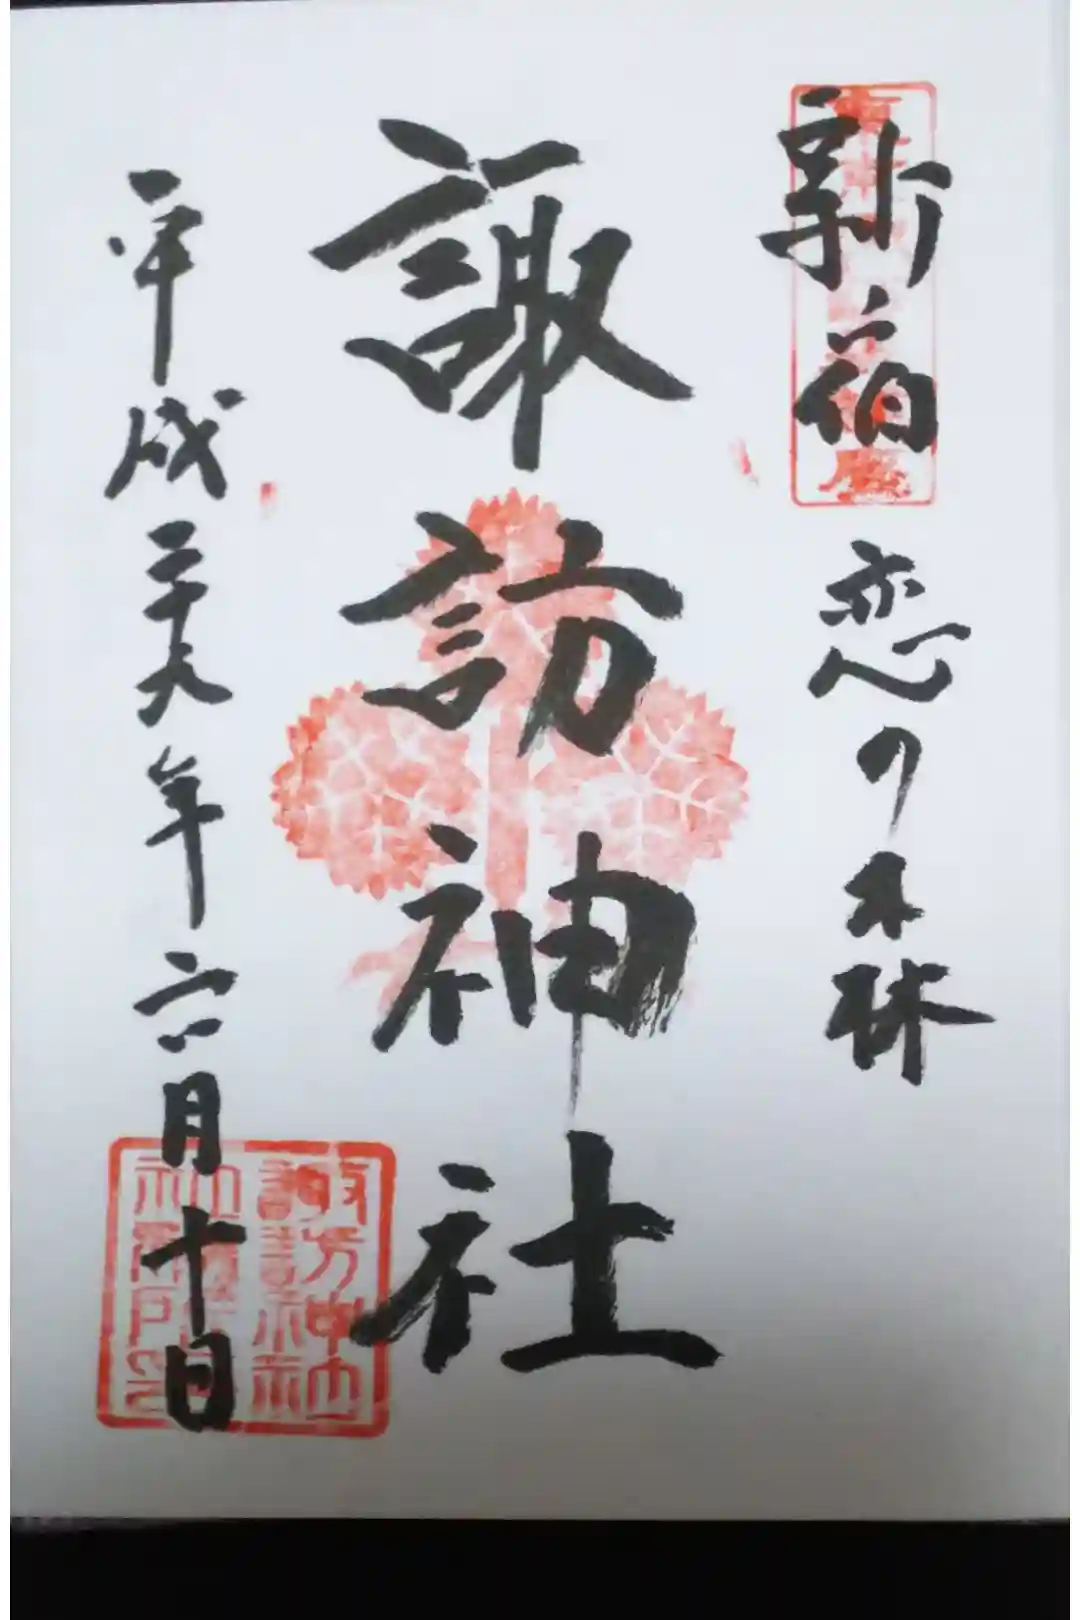 新宿 恋の森
諏訪神社
平成二十九年六月十日
諏訪神社
社務所印